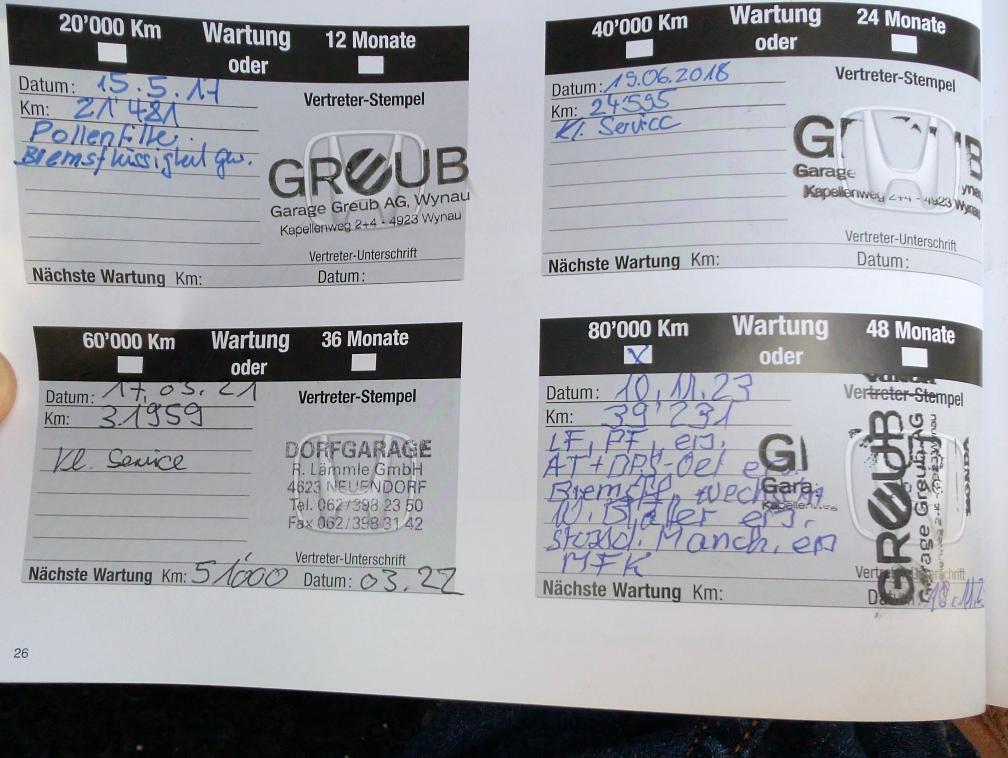 20'000 Km Wartung 12 Monate
oder
Datum: 15.5.17
Vertreter-Stempel
Km: 21'481
Pollenfilter.
Bremsflüssigkeit gw.
GREUB
Garage Greub AG, Wynau
Kapellenweg 2+4 - 4923 Wynau
Vertreter-Unterschrift
Nächste Wartung Km: Datum:
40'000 Km Wartung 24 Monate
oder
Datum: 19.06.2018
Vertreter-Stempel
Km: 24595
Kl. Service
Garage
Kapellenweg 2+4 - 4923 Wynau
Vertreter-Unterschrift
Nächste Wartung Km: Datum:
60'000 Km Wartung 36 Monate
oder
Datum: 17.03.21
Vertreter-Stempel
Km: 31959
Kl. Service
DORFGARAGE
R. Lämmle GmbH
4623 NEUENDORF
Tel. 062/398 23 50
Fax 062/398 31 42
Vertreter-Unterschrift
Nächste Wartung Km: 51'000 Datum: 03.22
80'000 Km Wartung 48 Monate
X oder
Datum: 10.11.23
Vertreter-Stempel
Km: 39'231
LF, PF, ers.
AT+DPS-Oel
Bremsfl.
W. Blätter ers.
Manch. ers
MFK
GREUB
Garage Greub AG
Nächste Wartung Km:
26